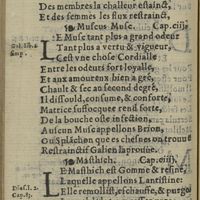 Des membres la chaleur estainct,
Et des femmes les flux restrainct,
Muscus Musc. Cap.ciij.
LE Musc tant plus a grand odeur
Tant plus a vertu & vigueur,
C'est vne chose Cordialle
Entre les odeurs fort loyalle,
Et aux amoureux bien a gré,
Chault & sec au second degré,
Il dissould, consume, & conforte,
Matrice suffocquee rend forte,
De la bouche oste infection,
Aucun Musc appellons Brion,
Ou Splachne que es chesnes on trouue
Restrainctif Galien l'aprouue.
Mastiche. Cap.ciiij.
LE Mastich est Gomme & resine,
Laquelle appellons Lantistine:
Elle remollist, eschauffe, & purge
Gal. lib. 6.
simp.
Dios. l. 1.
Cap. 85.